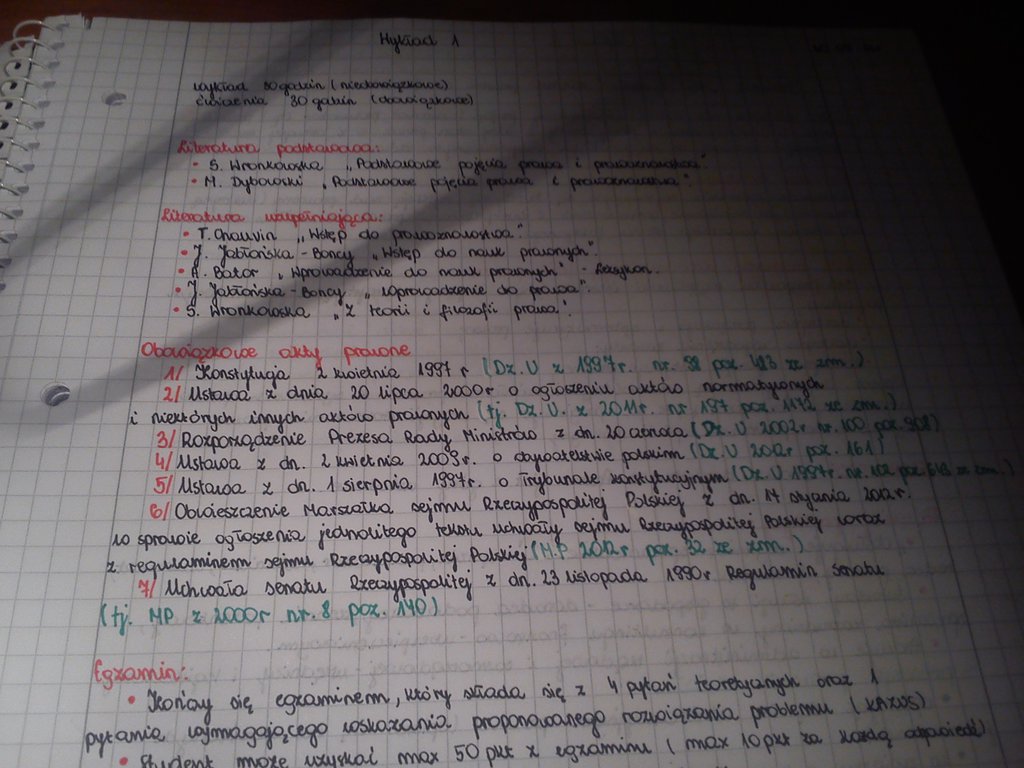 Wykład 1
wykład 30 godzin (nieobowiązkowe)
ćwiczenia 30 godzin (obowiązkowe)
Literatura podstawowa:
• S. Wronkowska „Podstawowe pojęcia prawa i prawoznawstwa".
• M. Dybowski „Podstawowe pojęcia prawa i prawoznawstwa".
Literatura uzupełniająca:
• T. Chauvin „Wstęp do prawoznawstwa".
• J. Jabłońska-Boncy „Wstęp do nauk prawnych".
• A. Bator „Wprowadzenie do nauk prawnych" - leksykon.
• J. Jabłońska-Boncy „Wprowadzenie do prawa".
• S. Wronkowska „Z teorii i filozofii prawa".
Obowiązkowe akty prawne
1/ Konstytucja 2 kwietnia 1997 r (Dz. U z 1997r. nr. 98 poz. 483 ze zm.)
2/ Ustawa z dnia 20 lipca 2000r o ogłoszeniu aktów normatywnych
i niektórych innych aktów prawnych (tj. Dz. U. z 2011r. nr 197 poz. 1172 ze zm.)
3/ Rozporządzenie Prezesa Rady Ministrów z dn. 20 czerwca (Dz. U 2002r nr. 100 poz 908)
4/ Ustawa z dn. 2 kwietnia 2009r. o obywatelstwie polskim (Dz. U 2012r poz. 161)
5/ Ustawa z dn. 1 sierpnia 1997r. o Trybunale konstytucyjnym (Dz. U 1997r. nr. 102 poz. 643 ze zm.)
6/ Obwieszczenie Marszałka sejmu Rzeczypospolitej Polskiej z dn. 17 stycznia 2012r.
w sprawie ogłoszenia jednolitego tekstu uchwały sejmu Rzeczypospolitej Polskiej wraz
z regulaminem sejmu Rzeczypospolitej Polskiej (M.P 2012r poz. 32 ze zm.)
7/ Uchwała senatu Rzeczypospolitej z dn. 23 listopada 1990r Regulamin senatu
(tj. MP z 2000r nr. 8 poz. 170)
Egzamin:
• Kończy się egzaminem, który składa się z 4 pytań teoretycznych oraz 1
pytania wymagającego wskazania proponowanego rozwiązania problemu (KAZUS)
• Student może uzyskać max 50 pkt z egzaminu (max 10 pkt za każdą odpowiedź)